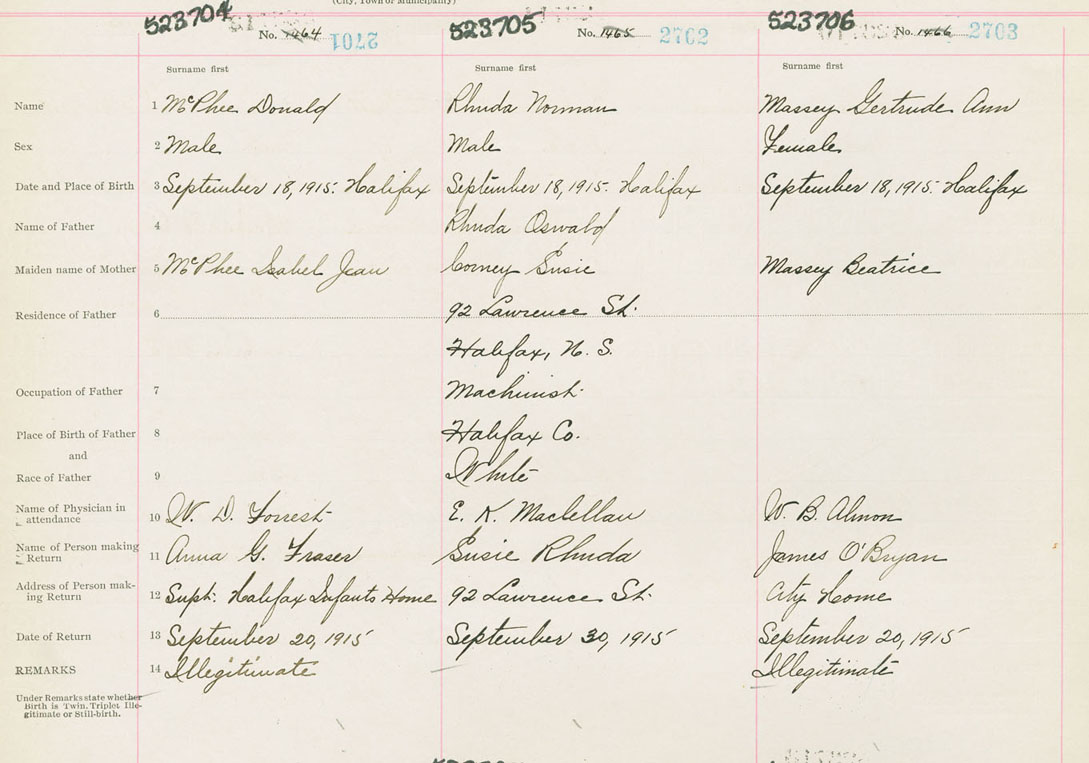 (City, Town or Municipality)
523704 No. 1464 2701 523705 No. 1465 2702 523706 No. 1466 2703
Surname first Surname first Surname first
Name 1 McPhee Donald Rhuda Norman Massey Gertrude Ann
Sex 2 Male Male Female
Date and Place of Birth 3 September 18, 1915. Halifax September 18, 1915. Halifax September 18, 1915. Halifax
Name of Father 4 Rhuda Oswald
Maiden name of Mother 5 McPhee Isabel Jean Corney Susie Massey Beatrice
Residence of Father 6 92 Lawrence St.
Halifax, N. S.
Occupation of Father 7 Machinist
Place of Birth of Father 8 Halifax Co.
and
Race of Father 9 White
Name of Physician in attendance 10 W. D. Forrest E. K. Maclellan W. B. Almon
Name of Person making Return 11 Anna G. Fraser Susie Rhuda James O'Bryan
Address of Person mak-
ing Return 12 Supt. Halifax Infants Home 92 Lawrence St. City Home
Date of Return 13 September 20, 1915 September 30, 1915 September 20, 1915
REMARKS 14 Illegitimate Illegitimate
Under Remarks state whether
Birth is Twin, Triplet Ille-
gitimate or Still-birth.